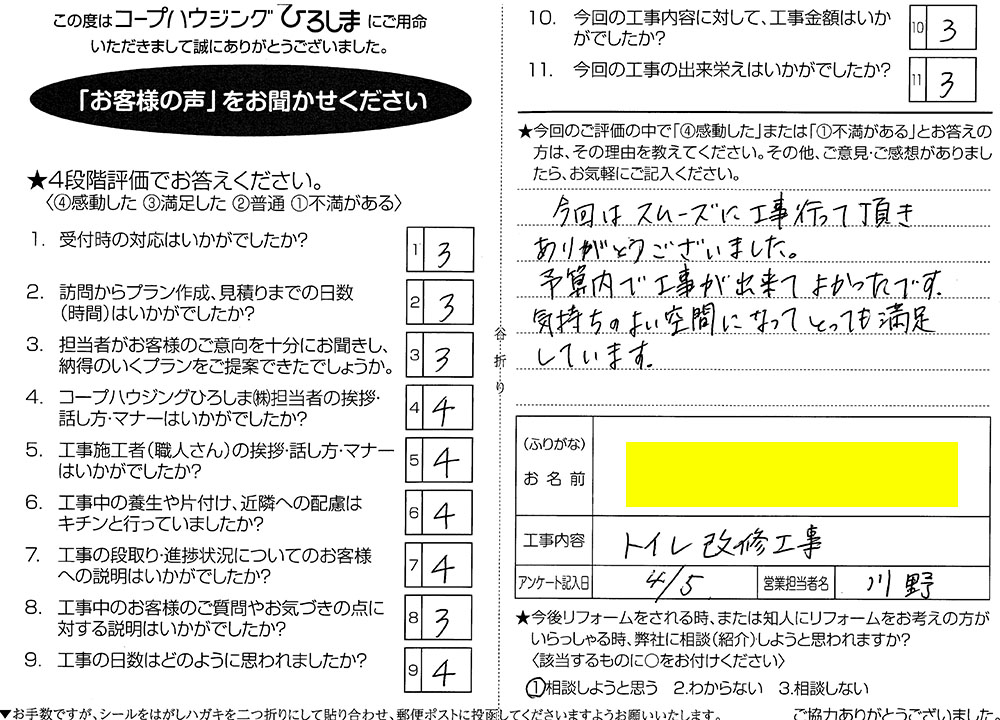 この度はコープハウジングひろしまにご用命
いただきまして誠にありがとうございました。
「お客様の声」をお聞かせください
★4段階評価でお答えください。
〈④感動した ③満足した ②普通 ①不満がある〉
1. 受付時の対応はいかがでしたか?
1 3
2. 訪問からプラン作成、見積りまでの日数
(時間)はいかがでしたか?
2 3
3. 担当者がお客様のご意向を十分にお聞きし、
納得のいくプランをご提案できたでしょうか。
3 3
4. コープハウジングひろしま㈱担当者の挨拶・
話し方・マナーはいかがでしたか?
4 4
5. 工事施工者(職人さん)の挨拶・話し方・マナー
はいかがでしたか?
5 4
6. 工事中の養生や片付け、近隣への配慮は
キチンと行っていましたか?
6 4
7. 工事の段取り・進捗状況についてのお客様
への説明はいかがでしたか?
7 4
8. 工事中のお客様のご質問やお気づきの点に
対する説明はいかがでしたか?
8 3
9. 工事の日数はどのように思われましたか?
9 4
▼お手数ですが、シールをはがしハガキを二つ折りにして貼り合わせ、郵便ポストに投函してくださいますようお願いいたします。
谷折り
10. 今回の工事内容に対して、工事金額はいか
がでしたか?
10 3
11. 今回の工事の出来栄えはいかがでしたか?
11 3
★今回のご評価の中で「④感動した」または「①不満がある」とお答えの
方は、その理由を教えてください。その他、ご意見・ご感想がありまし
たら、お気軽にご記入ください。
今回はスムーズに工事行って頂き
ありがとうございました。
予算内で工事が出来てよかったです.
気持ちのよい空間になってとっても満足
しています.
(ふりがな)
お名前
工事内容 トイレ改修工事
アンケート記入日 4/5 営業担当者名 川野
★今後リフォームをされる時、または知人にリフォームをお考えの方が
いらっしゃる時、弊社に相談(紹介)しようと思われますか?
〈該当するものに○をお付けください〉
①相談しようと思う 2.わからない 3.相談しない
ご協力ありがとうございました。